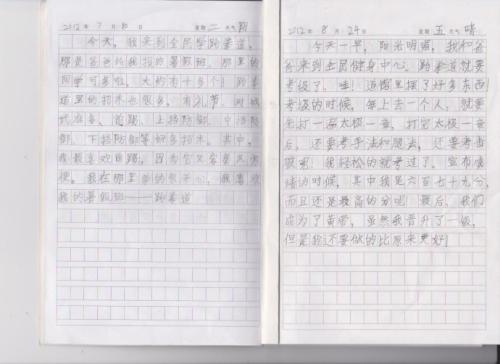 2012年7月 日 星期二 天气阴
今天，我来到全民堂跆拳道，
那是爸爸给我找的暑假班，那里的
同学可多啦，大约有十多个！跆拳
道里的招术也很多，有
式准备、 上格防御、中格防
御、下格防御等好多招术。其中，
我最喜欢 ，因为它又 又方
便。我在那里 的很开心，我喜欢
我的暑假班——跆拳道
2012年8月24日 星期五 天气晴
今天一早，阳光明媚，我和爸
爸来到全民健身中心，跆拳道就要
考级了。哇！道馆里摆了好多东西
考级的时候，每上去一个人，就要
先打一遍太极一章，打完太极一章
后，还要考手法和腿法，还要考击
破呢！我轻松的就考过了。宣布成
绩的时候，其中我是六百七十九分，
而且还是最高的分呢！最后，我们
成为了黄带，虽然我晋升了一级，
但是我还要做的比原来更好！